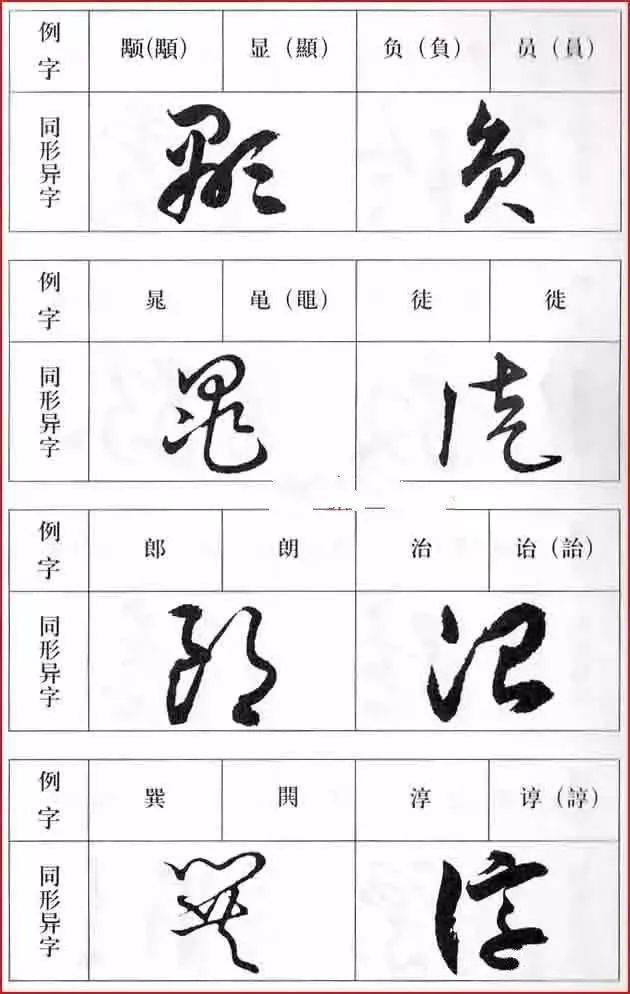 例字 颙(顒) 显(顯) 负(負) 员(員)
同形异字
例字 晁 黾(黽) 徒 徙
同形异字
例字 郎 朗 治 诒(詒)
同形异字
例字 巽 淳 谆(諄)
同形异字